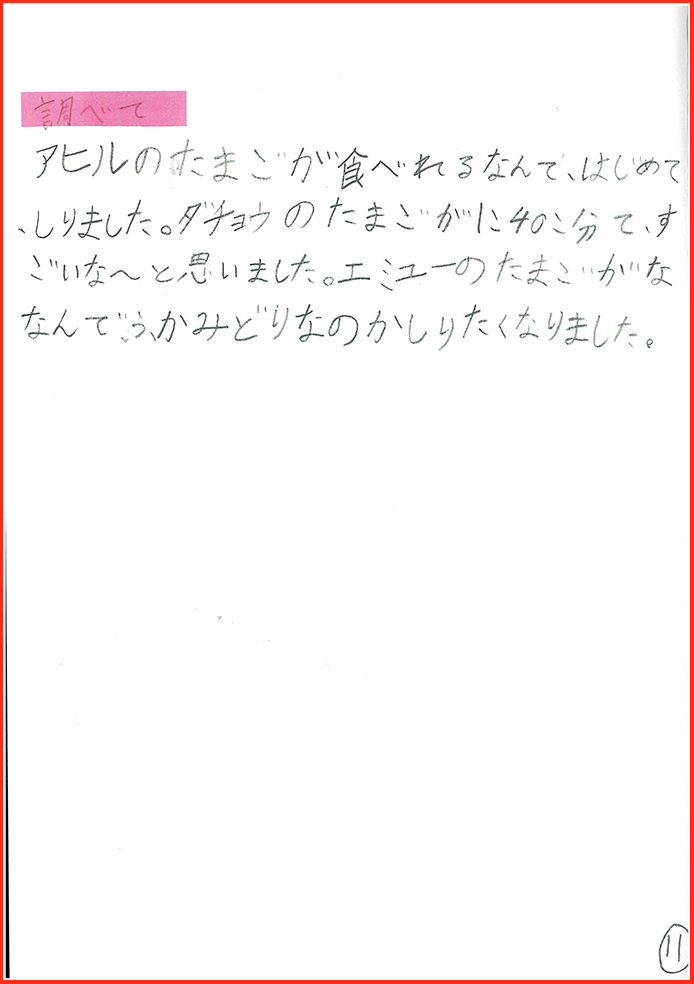 調べて
アヒルのたまごが食べれるなんて、はじめて
、しりました。ダチョウのたまごがに40こ分て、す
ごいな〜と思いました。エミューのたまごがな
なんでこう、かみどりなのかしりたくなりました。
11